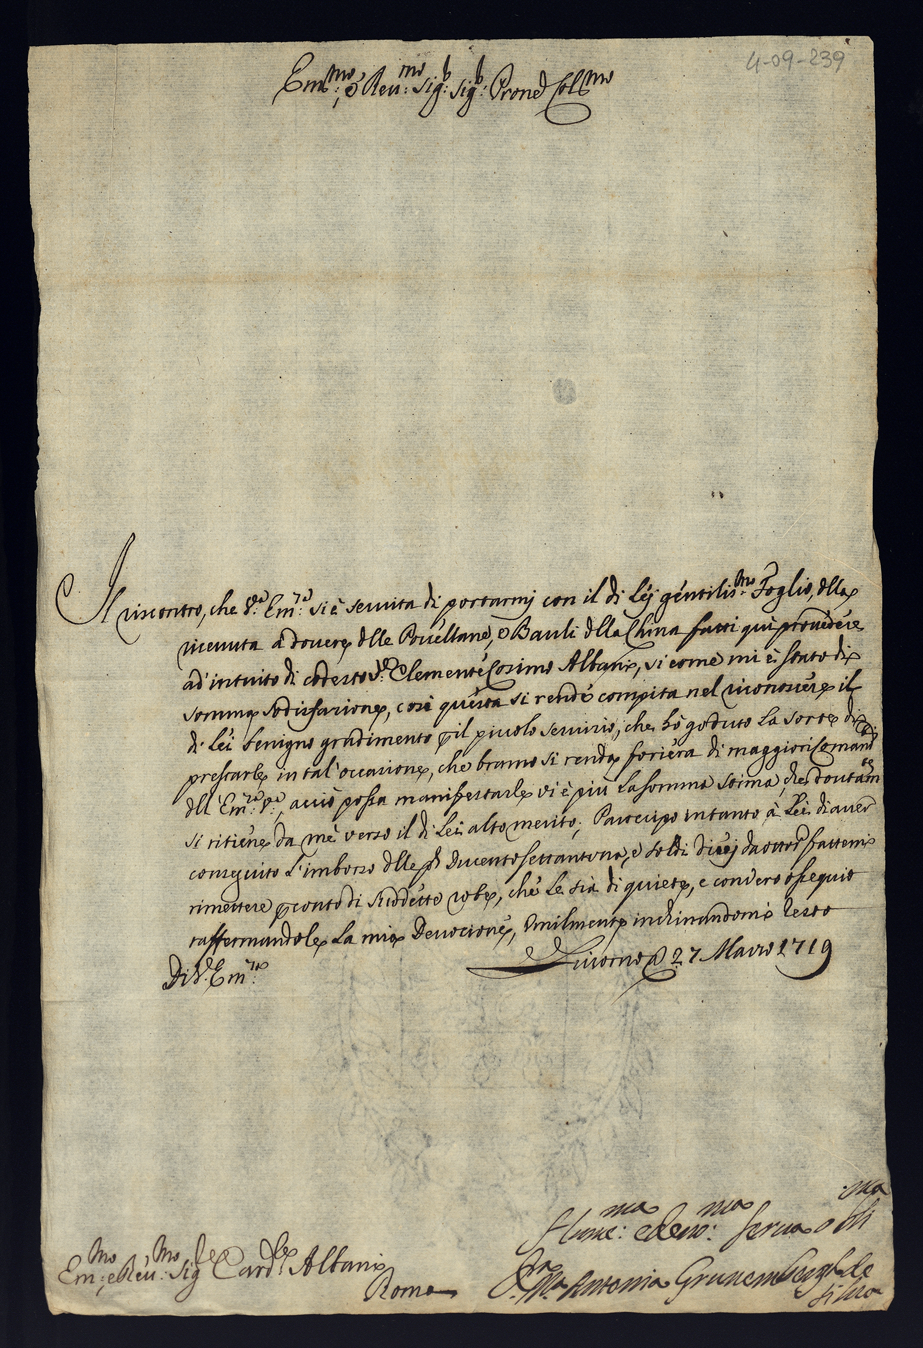 4-09-239
Em:mo, e Reu:mo Sigr: Sigr: Prone Collmo
Il riscontro, che V.a Em:za si è seruita di portarmj con il di Lej gentiliss:mo Foglio, della
riceuuta a douere delle Pouellane, e Bauli della China fatti quì prouedere
ad'intuito di codesto Sr. Clemente Cosimo Albani, si come mi è stato di
somma sodisfazione, cosi questa si rende compita nel riconoscere il
di Lei benigno gradimento p il picolo seruizio, che hò goduto la sorte di
prestarle in tal'occasione, che bramo si renda foriera di maggiori Comandi
dell'Em:za V.a, acciò possa manifestarle vi è più la somma stima, che doutam:te
si ritiene da mè verso il di Lei alto merito; Partecipo intanto à Lei di auer
conseguito l'imborso delle p Ducento settantuna, e soldi Diecj da ottor fattemi
rimettere p conto di suddette robe, che le sia di quiete, e con vero ossequio
raffermandole la mia Deuozione, Vmilmente inchinandomi resto
Di V.a Em:za
Liuorno 27 Marzo 1719
Hume:ma e deuo:ma serua obli:ma
Ma. Antonia Grunembergh de Silua
Em:mo e Reu:mo Sige Cardle: Albani
Roma